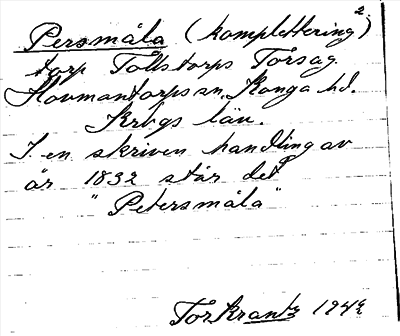 Persmåla (komplettering) 2
torp Tollstorps Torsag
Hovmantorps sn. Konga hd.
Krbgs län.
I en skriven handling av
år 1832 står det
"Petersmåla"
Tor Krantz 1942